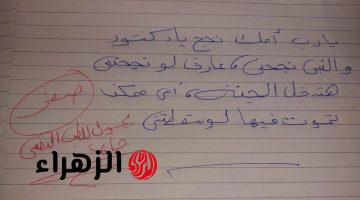 يارب أمك تحج يا دكتور
والنبى نجحنى، عارف لو نجحتنى
هتدخل الجنة، أمى ممكن
تموت فيها لو سقطتنى
صفر
يحول للطب النفسى
الزهراء